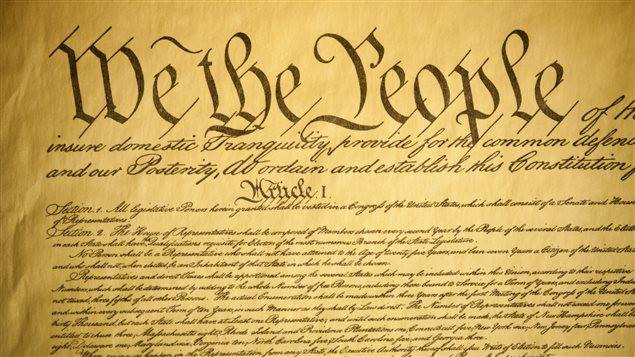 We the People of th
insure domestic Tranquility, provide for the common defenc
and our Posterity, do ordain and establish this Constitution f
Article I.
Section 1. All legislative Powers herein granted shall be vested in a Congress of the United States, which shall consist of a Senate and House
of Representatives.
Section 2. The House of Representatives shall be composed of Members chosen every second Year by the People of the several States, and the
in each State shall have the Qualifications requisite for Electors of the most numerous Branch of the State Legislature.
No Person shall be a Representative who shall not have attained to the Age of twenty five Years, and been seven Years a Citizen of the United States
and who shall not, when elected, be an Inhabitant of that State in which he shall be chosen.
Representatives and direct Taxes shall be apportioned among the several States which may be included within this Union, according to their respective
Numbers, which shall be determined by adding to the whole Number of free Persons, including those bound to Service for a Term of Years, and excluding Indians
not taxed, three fifths of all other Persons. The actual Enumeration shall be made within three Years after the first Meeting of the Congress of the United
and within every subsequent Term of ten Years, in such Manner as they shall by Law direct. The Number of Representatives shall not exceed one for
thirty Thousand, but each State shall have at Least one Representative; and until such enumeration shall be made, the State of New Hampshire shall
entitled to chuse three, Massachusetts eight, Rhode Island and Providence Plantations one, Connecticut five, New York six, New Jersey four, Pennsylvania
eight, Delaware one, Maryland six, Virginia ten, North Carolina five, South Carolina five, and Georgia three.
When vacancies happen in the Representation from any State, the Executive Authority thereof shall issue Writs of Election to fill such Vacancies.